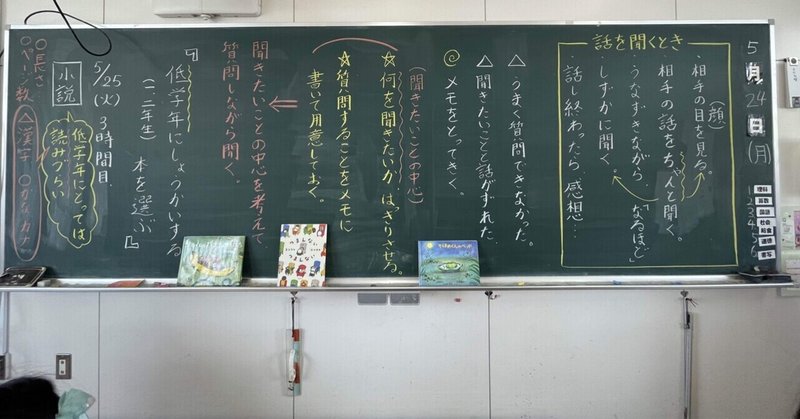 5月24日(月)
理科
算数
国語
社会
給食
道徳
書写
2
3
4
5
6
話を聞くとき
・相手の目を見る。
(顔)
・相手の話をちゃんと聞く。
・うなずきながら「なるほど」
・しずかに聞く。
・話し終わったら、感想…
△うまく質問できなかった。
△聞きたいことと話がずれた。
◎メモをとってきく。
(聞きたいことの中心)
☆何を聞きたいか、はっきりさせる。
☆質問することをメモに
書いて用意しておく。
聞きたいことの中心を考えて
質問しながら聞く。
『低学年にしょうかいする
(一、二年生) 本を選ぶ』
5/25(火) 3時間目
小説
低学年にとっては
読みづらい
○長さ
○ページ数
△漢字 ○かな、カナ